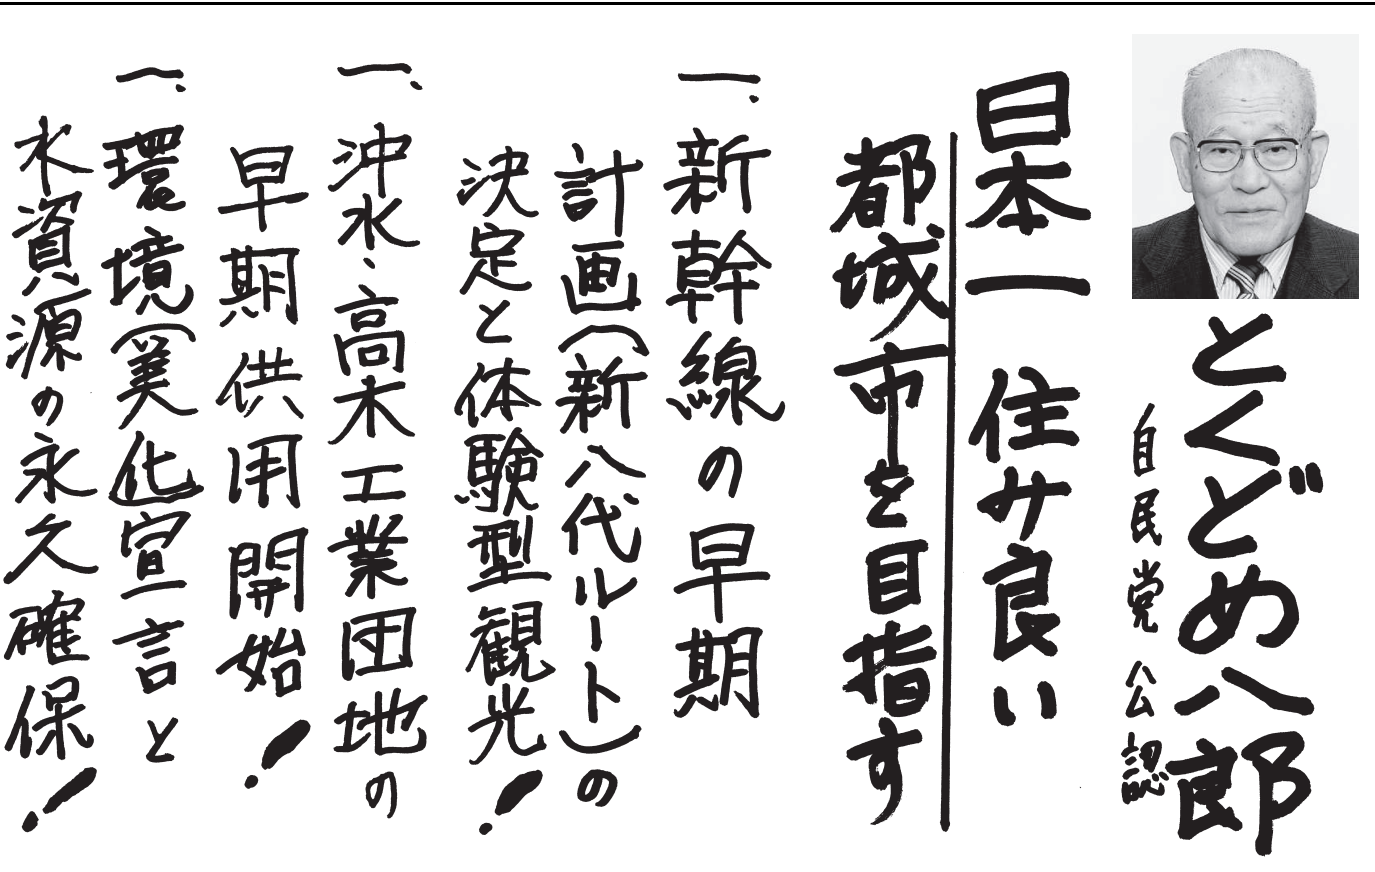 とくどめ八郎
自民党 公認
日本一 住み良い
都城市を目指す
一.新幹線の早期
計画(新八代ルート)の
決定と体験型観光!
一.沖水、高木工業団地の
早期供用開始!
一.環境(美化)宣言と
水資源の永久確保!